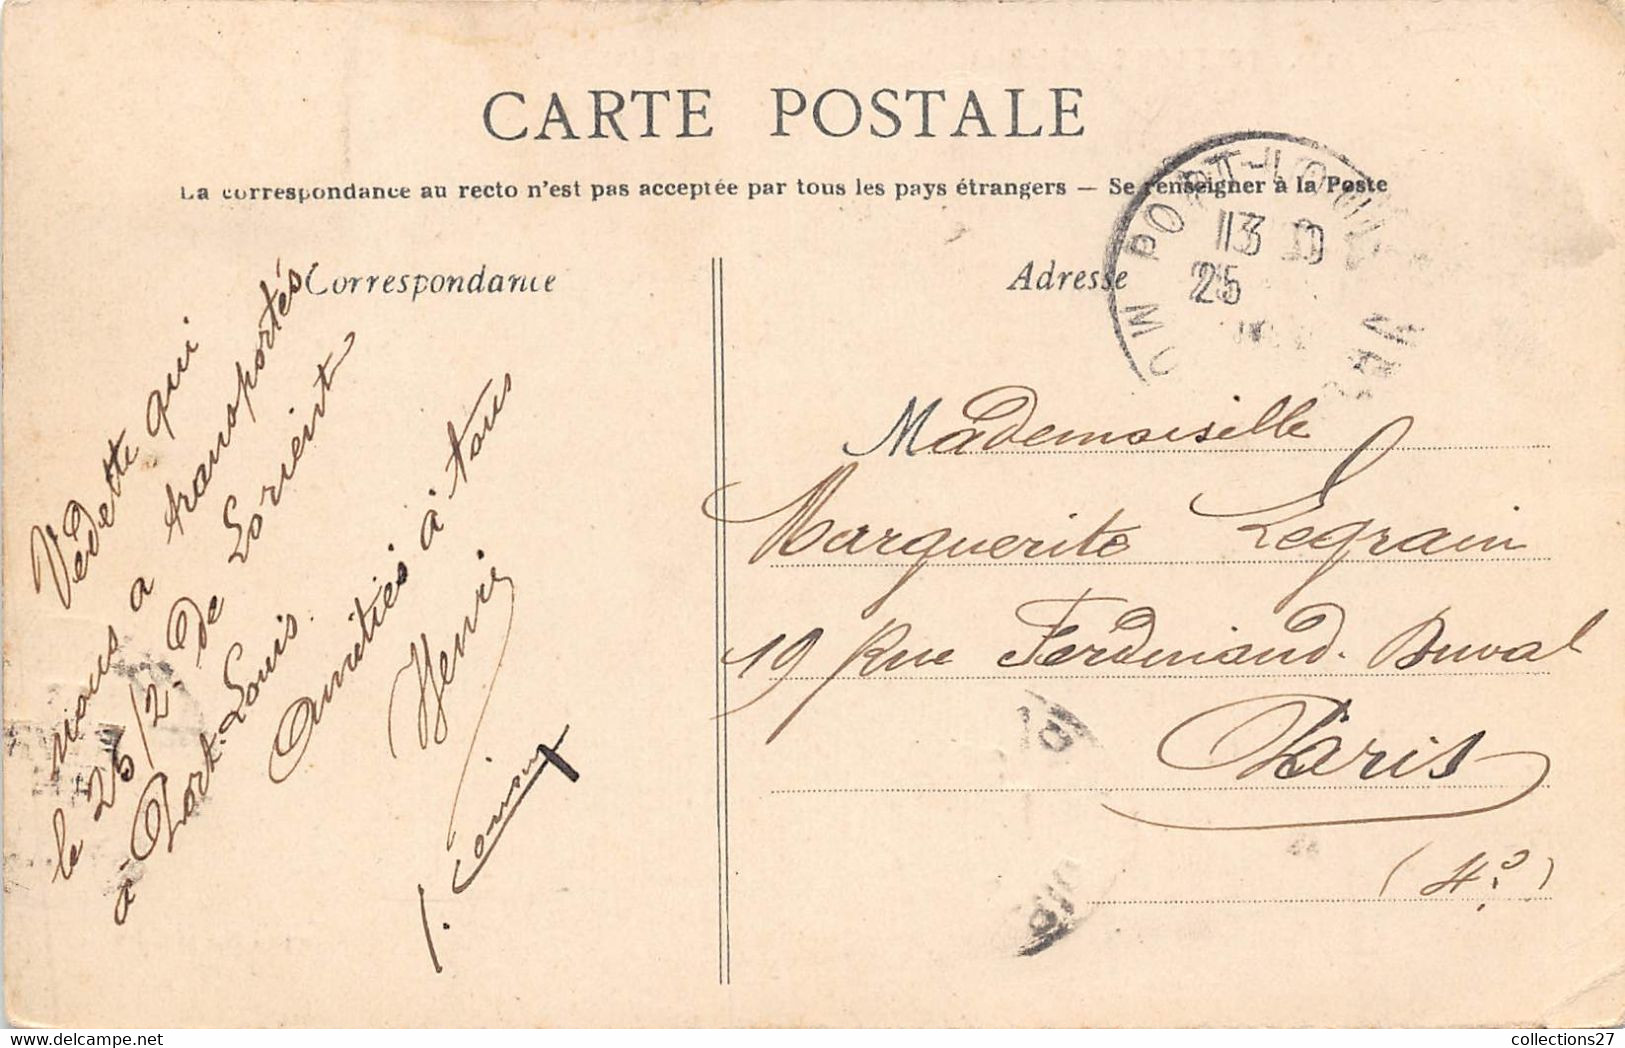 CARTE POSTALE
La correspondance au recto n'est pas acceptée par tous les pays étrangers — Se renseigner à la Poste
Correspondance
Vedette qui
nous a transportés
le 25/2. de Lorient
à Port-Louis.
Amitiés à tous
Henri
Adresse
PORT-LOUIS
13
25
Mademoiselle
Marguerite Legrain
19 Rue Ferdinand-Duval
Paris
(4º)
collections27